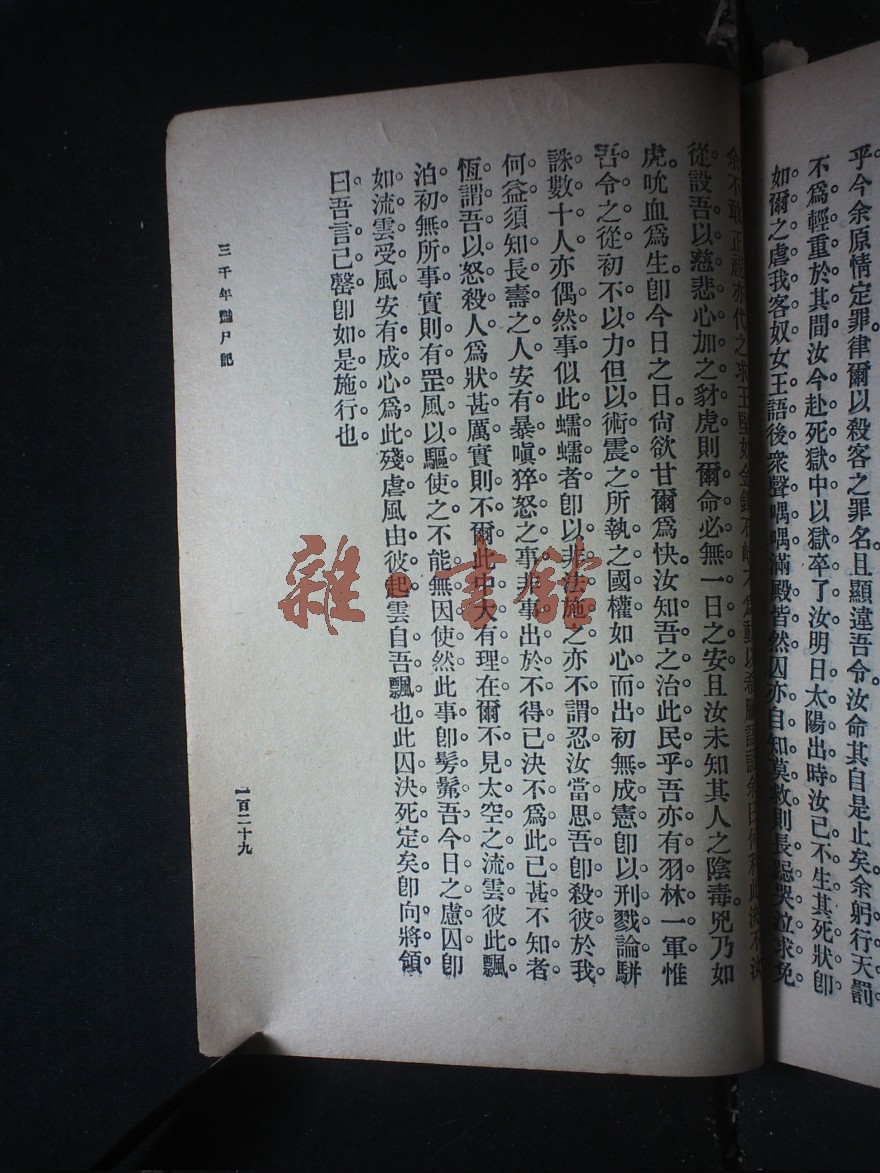 乎。今余原情定罪。律爾以殺客之罪名。且顯違吾令。汝命其自是止矣。余躬行天罰。
不爲輕重於其間。汝今赴死獄中。以獄卒了汝。明日太陽出時。汝已不生。其死狀卽
如爾之虐我客奴。女王語後。衆聲喁喁。滿殿皆然。囚亦自知莫救。則長跽哭泣求免。
余不敢正視。亦代之求王。王堅如金
從。設吾以慈悲心加之豺虎。則爾命必無一日之安。且汝未知其人之陰毒兇乃如
虎。吮血爲生。卽今日之日。尙欲甘爾爲快。汝知吾之治此民乎。吾亦有羽林一軍。惟
吾令之從。初不以力。但以術震之。所執之國權。如心而出。初無成憲。卽以刑戮論。駢
誅數十人。亦偶然事。似此蠕蠕者。卽以非法施之。亦不謂忍。汝當思吾卽殺彼。於我
何益。須知長壽之人。安有暴嗔猝怒之事。非事出於不得已。決不爲此已甚。不知者
恆謂吾以怒殺人。爲狀甚厲。實則不爾。此中大有理在。爾不見太空之流雲。彼此飄
泊。初無所事。實則有罡風以驅使之。不能無因使然。此事卽髣髴吾今日之慮囚。卽
如流雲受風。安有成心爲此殘虐。風由彼起。雲自吾飄也。此囚決死定矣。卽向將領
曰。吾言已罄。卽如是施行也。
三千年艷尸記
一百二十九
雜·書館